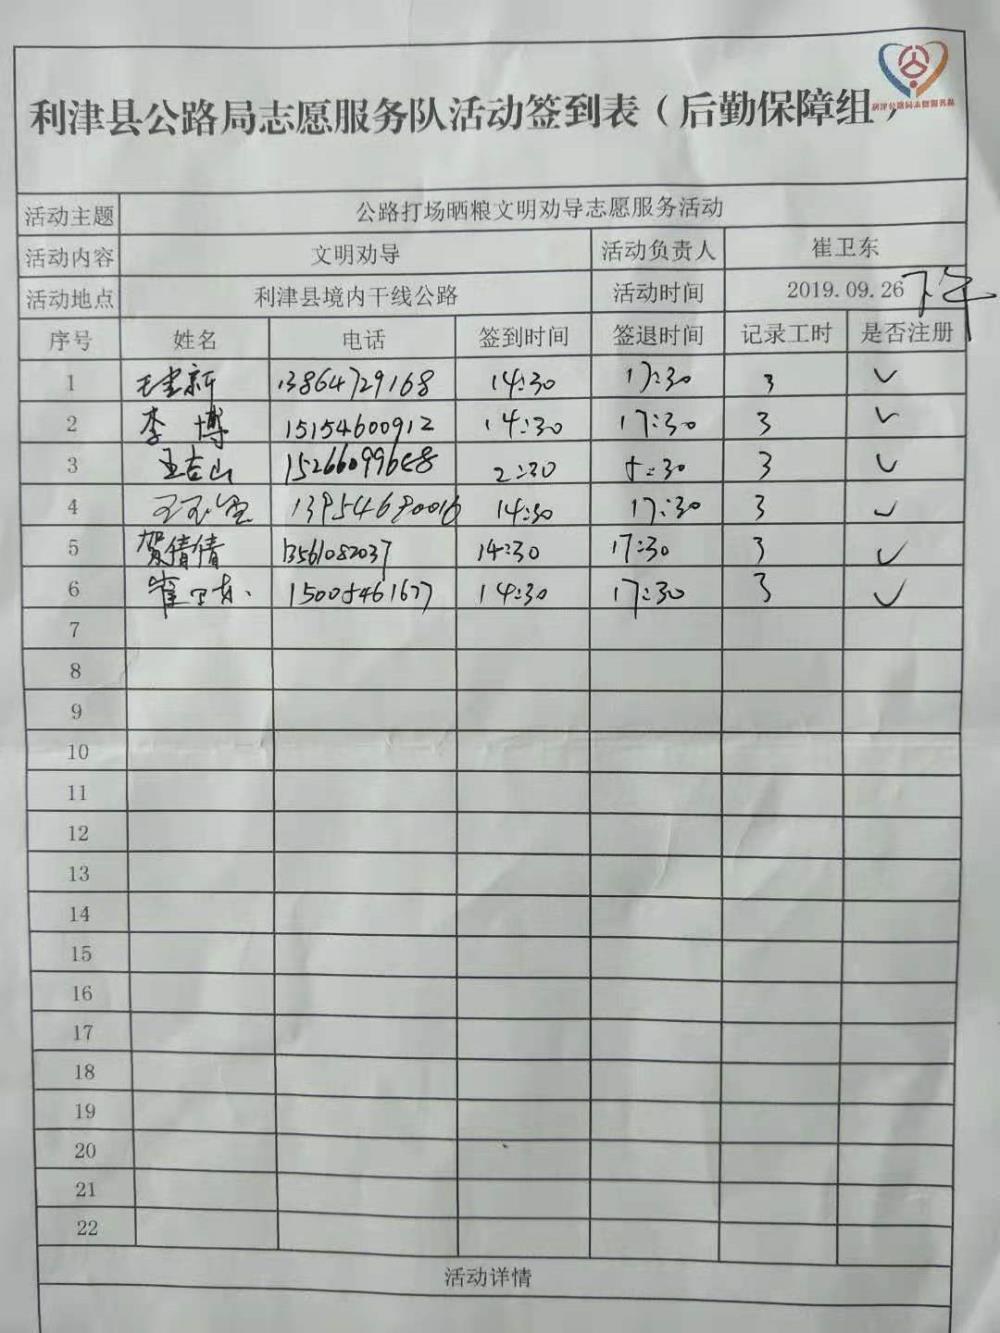 利津县公路局志愿服务队活动签到表（后勤保障组）
利津县公路局志愿服务队
活动主题 公路打场晒粮文明劝导志愿服务活动
活动内容 文明劝导 活动负责人 崔卫东
活动地点 利津县境内干线公路 活动时间 2019.09.26 下午
序号 姓名 电话 签到时间 签退时间 记录工时 是否注册
1 13864729168 14:30 17:30 3 ✓
2 李博 15154600912 14:30 17:30 3 ✓
3 王吉山 2:30 5:30 3 ✓
4 14:30 17:30 3 ✓
5 贺倩倩 13561082037 14:30 17:30 3 ✓
6 崔卫东 15005461677 14:30 17:30 3 ✓
7
8
9
10
11
12
13
14
15
16
17
18
19
20
21
22
活动详情